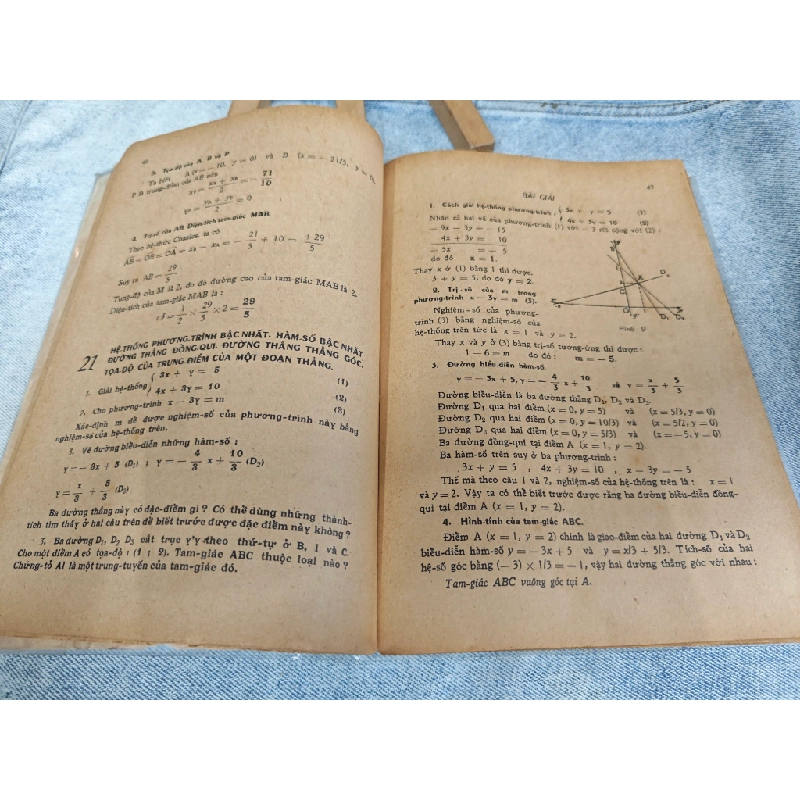 3. Tọa-độ của A, B và P
P là trung-điểm của AB nên
= 71/10
= 0
4. Trị-số của AB Diện-tích tam-giác MAB
Theo hệ-thức Chasles, ta có
AB = OB − OA = − 21/5 + 10 = 29/5
Suy ra AB = 29/5
Tung-độ của M là 2, do đó đường cao của tam-giác MAB là 2.
Diện-tích của tam-giác MAB là :
S = 1/2 × 29/5 × 2 = 29/5
21 HỆ-THỐNG PHƯƠNG-TRÌNH BẬC NHẤT. HÀM-SỐ BẬC NHẤT
ĐƯỜNG THẲNG ĐỒNG-QUI. ĐƯỜNG THẲNG THẲNG GÓC.
TỌA-ĐỘ CỦA TRUNG-ĐIỂM CỦA MỘT ĐOẠN THẲNG.
1. Giải hệ-thống { 3x + y = 5 (1)
4x + 3y = 10 (2)
2. Cho phương-trình x − 3y = m (3)
Xác-định m để được nghiệm-số của phương-trình này bằng
nghiệm-số của hệ-thống trên.
3. Vẽ đường biểu-diễn những hàm-số :
y = − 3x + 5 (D₁) ; y = − 4/3 x + 10/3 (D₂)
y = x/3 + 5/3 (D₃)
Ba đường thẳng này có đặc-điểm gì ? Có thể dùng những thành-
tích tìm thấy ở hai câu trên để biết trước được đặc điểm này không ?
Ba đường D₁, D₂, D₃ cắt trục y'y theo thứ-tự ở B, I và C.
Cho một điểm A có tọa-độ : (1 ; 2). Tam-giác ABC thuộc loại nào ?
Chứng-tỏ AI là một trung-tuyến của tam-giác đó.
BÀI GIẢI
1. Cách giải hệ-thống phương-trình { 3x + y = 5 (1)
4x + 3y = 10 (2)
Nhân cả hai vế của phương-trình (1) với − 3 rồi cộng với (2) :
− 9x − 3y = − 15
4x + 3y = 10
− 5x = − 5
do đó x = 1.
Thay x ở (1) bằng 1 thì được.
3 + y = 5, do đó y = 2.
2. Trị-số của m trong
phương-trình x − 3y = m (3).
Nghiệm-số của phương-
trình (3) bằng nghiệm-số của
hệ-thống trên tức là x = 1 và y = 2.
Thay x và y ở (3) bằng trị-số tương-ứng thì được :
1 − 6 = m do đó : m = − 5.
3. Đường biểu diễn hàm-số.
y = − 3x + 5, y = − 4/3 x + 10/3 và y = x/3 + 5/3
Đường biểu-diễn là ba đường thẳng D₁, D₂ và D₃.
Đường D₁ qua hai điểm (x = 0, y = 5) và (x = 5/3, y = 0)
Đường D₂ qua hai điểm (x = 0, y = 10/3) và (x = 5/2, y = 0)
Đường D₃ qua hai điểm (x = 0, y = 5/3) và (x = − 5, y = 0)
Ba đường đồng-qui tại điểm A (x = 1, y = 2)
Ba hàm-số trên suy ở ba phương-trình :
3x + y = 5 ; 4x + 3y = 10 , x − 3y = − 5
Thế mà theo câu 1 và 2, nghiệm-số của hệ-thống trên là : x = 1
và y = 2. Vậy ta có thể biết trước được rằng ba đường biểu-diễn đồng-
qui tại điểm A (x = 1, y = 2).
4. Hình-tính của tam-giác ABC.
Điểm A (x = 1, y = 2) chính là giao-điểm của hai đường D₁ và D₃
biểu-diễn hàm-số y = − 3x + 5 và y = x/3 + 5/3. Tích-số của hai
hệ-số góc bằng (− 3) × 1/3 = − 1, vậy hai đường thẳng góc với nhau :
Tam-giác ABC vuông góc tại A.